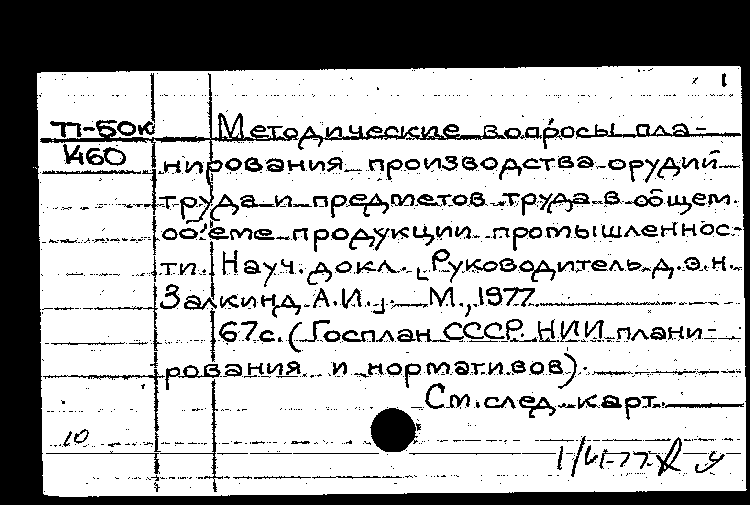 1
П-50к Методические вопросы пла-
1460 нирования производства орудий
труда и предметов труда в общем
объеме продукции промышленнос-
ти. Науч. докл. [Руководитель д.э.н.
Залкинд А.И.]. М., 1977
67с. (Госплан СССР. НИИ плани-
рования и нормативов).
См. след. карт.
10